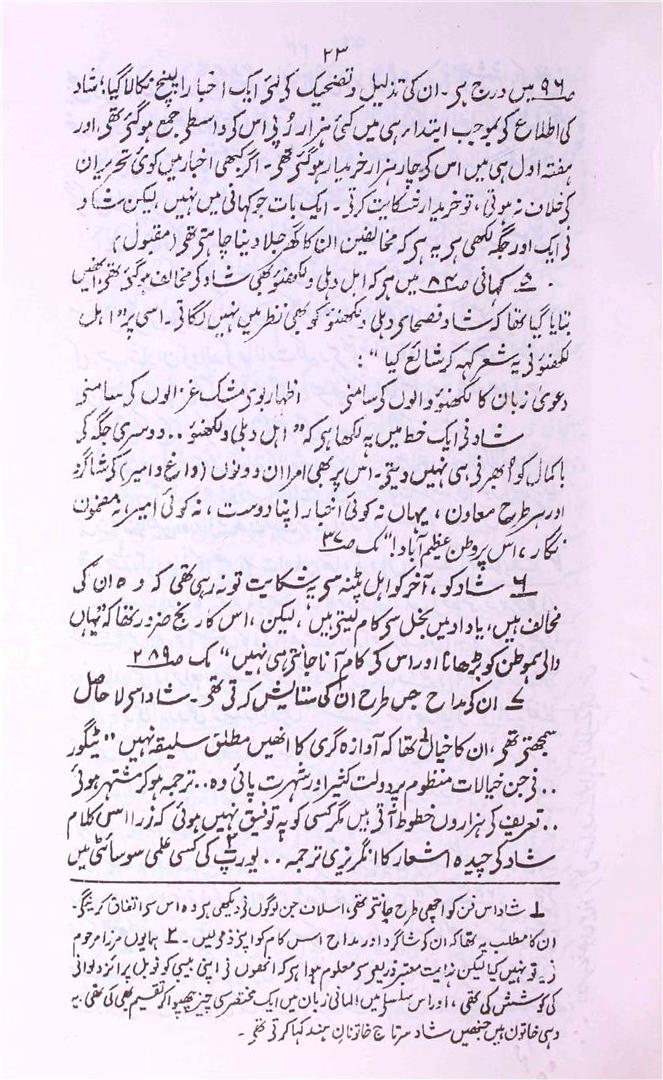 ۲۳
ص۹۶ میں درج ہی۔ ان کی تذلیل و تضحیک کی لئی ایک اخبار الپنچ نکالا گیا؛ شاد
کی اطلاع کی بموجب ابتداء ہی میں کئی ہزار رُپئی اس کی واسطی جمع ہو گئی تھی، اور
ہفتہ اول ہی میں اس کی چار ہزار خریدار ہو گئی تھی۔ اگر کبھی اخبار میں کوئی تحریر ان
کی خلاف نہ ہوتی، تو خریدار شکایت کرتی۔ ایک بات جو کہانی میں نہیں، لیکن شاد
نی ایک اور جگہ لکھی ہی یہ ہی کہ مخالفین ان کا گھر جلا دینا چاہتی تھی (مقبول)
۵ کہانی ص۸۴ میں ہی کہ اہل دہلی و لکھنؤ بھی شاد کی مخالف ہو گئی تھی، انھیں
بتایا گیا تھا کہ شاد فصحای دہلی و لکھنؤ کو بھی نظر میں نہیں لگاتی۔ اسی پر "اہل
لکھنؤ نی یہ شعر کہہ کر شائع کیا":
دعویٰ زبان کا لکھنؤ والوں کی سامنی اظہار بوی مشک غزالوں کی سامنی
شاد نی ایک خط میں یہ لکھا ہی کہ "اہل دہلی و لکھنؤ .. دوسری جگہ کی
باکمال کو اُبھرنی ہی نہیں دیتی۔ اس پر بھی امرا ان دونوں (داغ و امیر) کی شاگرد
اور ہر طرح معاون، یہاں نہ کوئی اخبار اپنا دوست، نہ کوئی امیر، نہ مضمون
نگار، اس پر وطن عظیم آباد!" مک ص۳۷
۶ شاد کو، آخر کو اہل پٹنہ سی یہ شکایت تو نہ رہی تھی کہ وہ ان کی
مخالف ہیں، یا داد میں بخل سی کام لیتی ہیں، لیکن، اس کا رنج ضرور تھا کہ "یہاں
والی ہموطن کو بڑھانا اور اس کی کام آنا جانتی ہی نہیں" مک ص۲۸۹
۷ ان کی مداح جس طرح ان کی ستایش کرتی تھی۔ شاد اسی لا حاصل
سمجھتی تھی، ان کا خیال۱ تھا کہ آوازہ گری کا انھیں مطلق سلیقہ نہیں "ٹیگور
.. نی جن خیالات منظوم پر دولت کثیر اور شہرت پائی وہ .. ترجمہ ہو کر مشتہر ہوئی
.. تعریف کی ہزاروں خطوط آتی ہیں مگر کسی کو یہ توفیق نہیں ہوئی کہ زرا اسی کلام
شاد کی چیدہ اشعار کا انگریزی ترجمہ .. یورپ۲ کی کسی علمی سوسائٹی میں
۱ شاد اس فن کو اچھی طرح جانتی تھی، اسلاف جن لوگوں نی دیکھی ہی وہ اس سی اتفاق کرینگی۔
ان کا مطلب یہ تھا کہ ان کی شاگرد اور مداح اس کام کو اپنی ذمی لیں۔ ۲ ہمایوں مرزا مرحوم
نی یہ تو نہیں کیا لیکن نہایت معتبر ذریعی سی معلوم ہوا ہی کہ انھوں نی اپنی بیبی کو نوبل پرائز دلوانی
کی کوشش کی تھی، اور اس سلسلی میں المانی زبان میں ایک مختصر سی چیز چھپوا کر تقسیم بھی کی تھی۔ یہ
وہی خاتون ہیں جنھیں شاد سرتاج خاتونان ہند کہا کرتی تھی۔